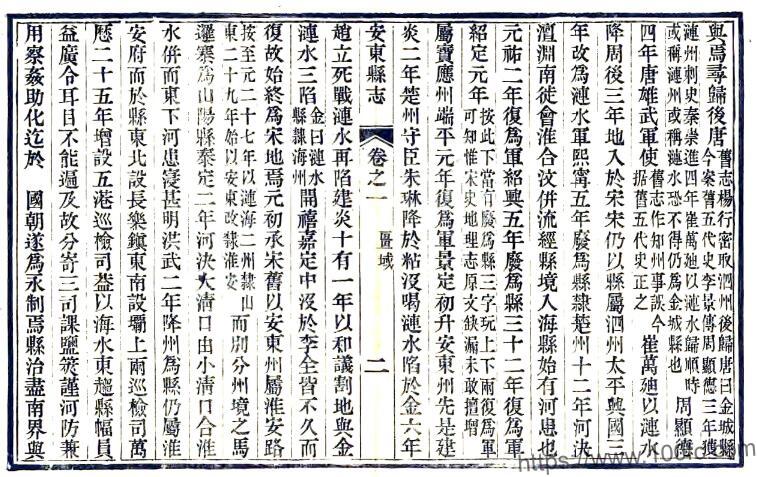 與焉尋歸後唐舊志楊行密取泗州後歸唐曰金城縣今案舊五代史李景傳周顯德三年獲
漣州刺史秦崇進四年崔萬廸以漣水歸順時或稱漣州或稱漣水恐不得仍為金城縣也周顯德
四年唐雄武軍使舊志作知州事誤今據舊五代史正之崔萬廸以漣水
降周後三年地入於宋宋仍以縣屬泗州太平興國三
年改為漣水軍熙寧五年廢為縣隸楚州十二年河決
澶淵南徙會淮合汶併流經縣境入海縣始有河患也
元祐二年復為軍紹興五年廢為縣三十二年復為軍
紹定元年按此下當有廢為縣三字玩上下兩復為軍可知惟宋史地理志原文缺漏未敢擅增
屬寶應州端平元年復為軍景定初升安東州先是建
炎二年楚州守臣朱琳降於粘沒喝漣水陷於金六年
安東縣志 卷之一 疆域 二
趙立死戰漣水再陷建炎十有一年以和議割地與金
漣水三陷金曰漣水縣隸海州開禧嘉定中沒於李全皆不久而
復故始終為宋地焉元初承宋舊以安東州屬淮安路
按至元二十七年以漣海二州隸山東二十九年始以安東改隸淮安而別分州境之馬
邏寨為山陽縣泰定二年河決大清口由小清口合淮
水併而東下河患寖甚明洪武二年降州為縣仍屬淮
安府而於縣東北設長樂鎮東南設壩上兩巡檢司萬
歷二十五年增設五港巡檢司葢以海水東趨縣幅員
益廣令耳目不能遍及故分寄三司課鹽筴謹河防兼
用察姦助化迄於 國朝遂為永制焉縣治盡南界與